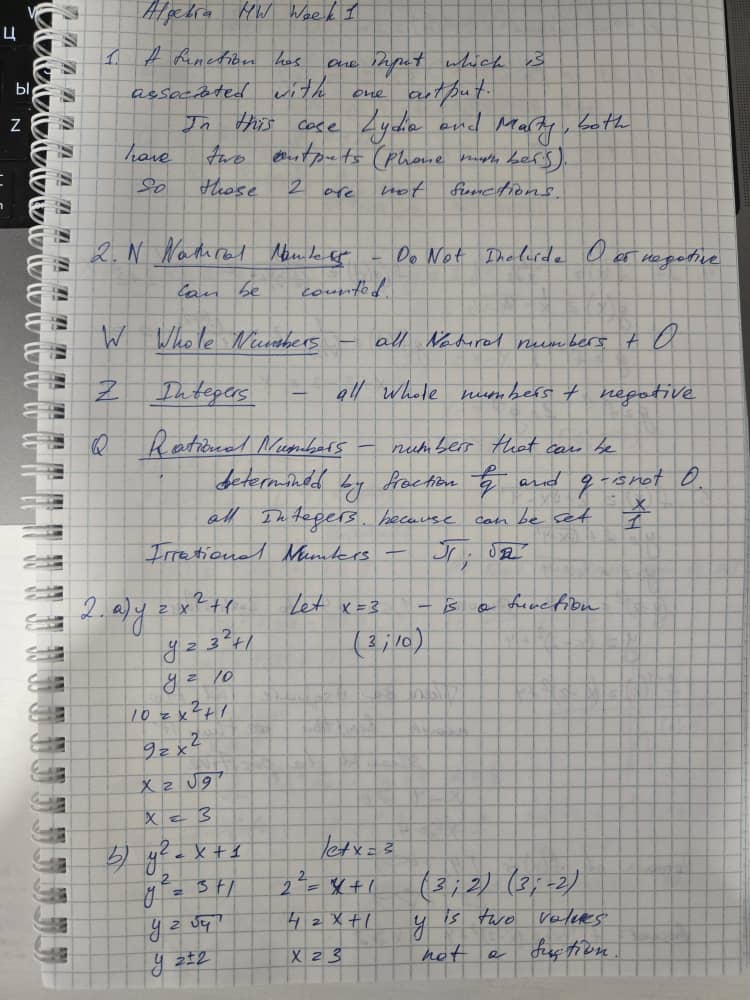 Algebra HW Week 1
1. A function has one input which is
associated with one output.
In this case Lydia and Marty, both
have two outputs (phone numbers).
So those 2 are not functions.
2. N Natural Numbers - Do Not Include 0 or negative
can be counted.
W Whole Numbers - all Natural numbers + 0
Z Integers - all whole numbers + negative
Q Rational Numbers - numbers that can be
determind by fraction p/q and q - is not 0.
all Integers, because can be set x/1
Irrational Numbers - π; √2
2. a) y = x² + 1 Let x = 3 - is a function
y = 3² + 1 (3; 10)
y = 10
10 = x² + 1
9 = x²
x = √9
x = 3
b) y² = x + 1 let x = 3
y² = 3 + 1 2² = x + 1 (3; 2) (3; -2)
y = √4 4 = x + 1 y is two values
y = ±2 x = 3 not a fuction.
Ц
Ы
Z